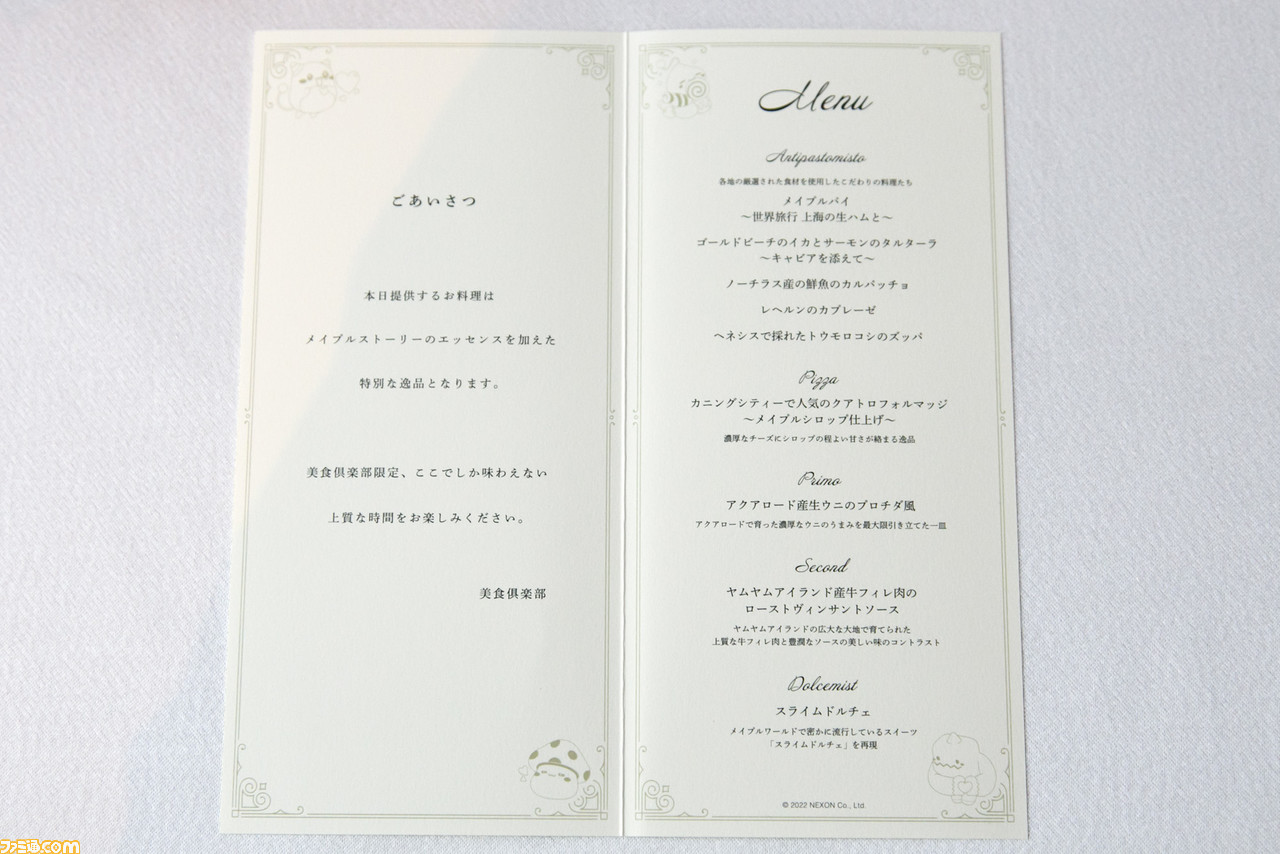 ごあいさつ
本日提供するお料理は
メイプルストーリーのエッセンスを加えた
特別な逸品となります。
美食倶楽部限定、ここでしか味わえない
上質な時間をお楽しみください。
美食倶楽部
Menu
Antipastomisto
各地の厳選された食材を使用したこだわりの料理たち
メイプルパイ
～世界旅行 上海の生ハムと～
ゴールドビーチのイカとサーモンのタルターラ
～キャビアを添えて～
ノーチラス産の鮮魚のカルパッチョ
レヘルンのカプレーゼ
ヘネシスで採れたトウモロコシのズッパ
Pizza
カニングシティーで人気のクアトロフォルマッジ
～メイプルシロップ仕上げ～
濃厚なチーズにシロップの程よい甘さが絡まる逸品
Primo
アクアロード産生ウニのプロチダ風
アクアロードで育った濃厚なウニのうまみを最大限引き立てた一皿
Second
ヤムヤムアイランド産牛フィレ肉の
ローストヴィンサントソース
ヤムヤムアイランドの広大な大地で育てられた
上質な牛フィレ肉と豊潤なソースの美しい味のコントラスト
Dolcemist
スライムドルチェ
メイプルワールドで密かに流行しているスイーツ
「スライムドルチェ」を再現
© 2022 NEXON Co., Ltd.
ファミ通com